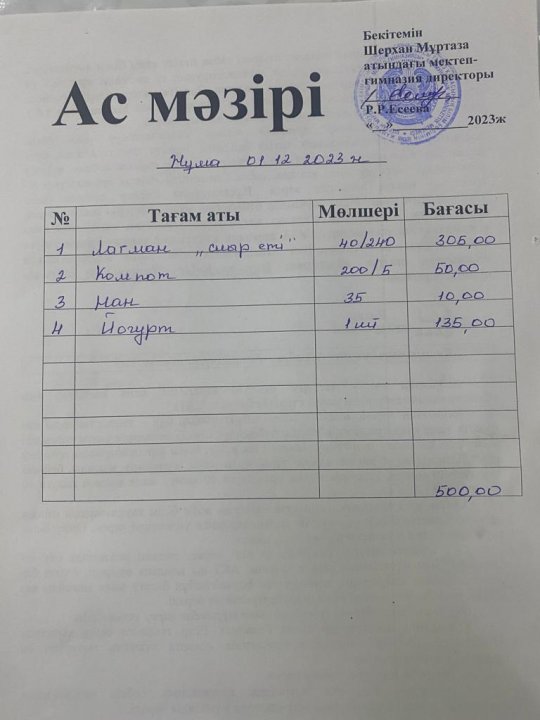 Бекітемін
Шерхан Мұртаза
атындағы мектеп-
гимназия директоры
Р.Р.Есеева
« » 2023ж
Ас мәзірі
Жұма 01 12 2023 ж
№ Тағам аты Мөлшері Бағасы
1 Лагман „сиыр еті" 40/240 305,00
2 Компот 200/5 50,00
3 Нан 35 10,00
4 Йогурт 1 шт 135,00
500,00